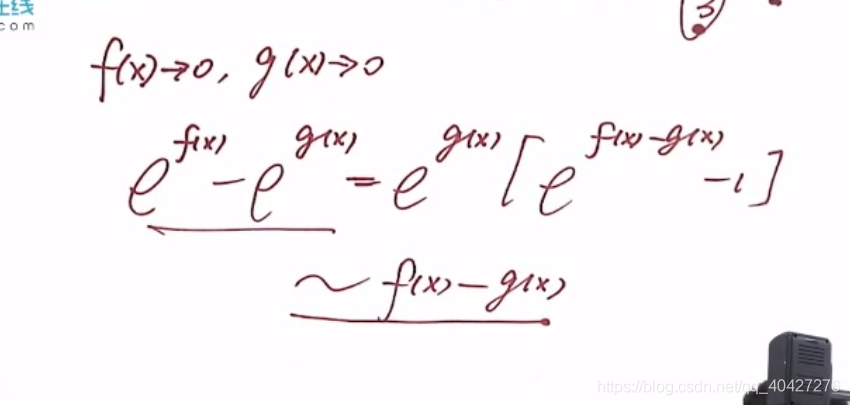 上线
com
3
f(x)→0, g(x)→0
e^{f(x)} - e^{g(x)} = e^{g(x)} [ e^{f(x)-g(x)} - 1 ]
~ f(x) - g(x)
https://blog.csdn.net/qq_40427276